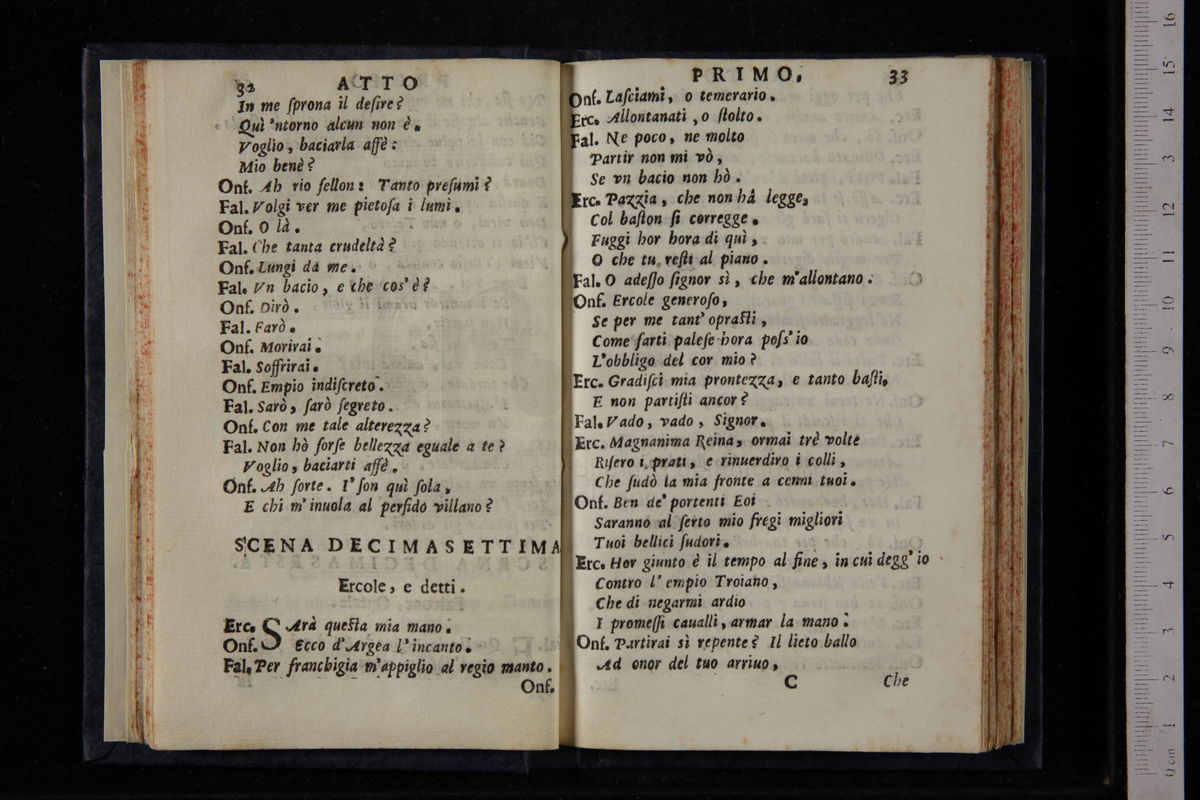 32 ATTO
In me ſprona il deſire?
Quì 'ntorno alcun non è.
Voglio, baciarla affè:
Mio benè?
Onf. Ah rio fellon: Tanto preſumi?
Fal. Volgi ver me pietoſa i lumi.
Onf. O là.
Fal. Che tanta crudeltà?
Onf. Lungi da me.
Fal. Vn bacio, e che cos' è?
Onf. Dirò.
Fal. Farò.
Onf. Morirai.
Fal. Soffrirai.
Onf. Empio indiſcreto.
Fal. Sarò, ſarò ſegreto.
Onf. Con me tale alterezza?
Fal. Non hò forſe bellezza eguale a te?
Voglio, baciarti affè.
Onf. Ah ſorte. I' ſon quì ſola,
E chi m' inuola al perfido villano?
SCENA DECIMASETTIMA
Ercole, e detti.
Erc. SArà queſta mia mano.
Onf. Ecco d'Argea l' incanto.
Fal. Per franchigia m'appiglio al regio manto.
Onf.
PRIMO. 33
Onf. Laſciami, o temerario.
Erc. Allontanati, o ſtolto.
Fal. Ne poco, ne molto
Partir non mi vò,
Se vn bacio non hò.
Erc. Pazzia, che non hà legge,
Col baſton ſi corregge.
Fuggi hor hora di quì,
O che tu reſti al piano.
Fal. O adeſſo ſignor sì, che m'allontano.
Onf. Ercole generoſo,
Se per me tant' opraſti,
Come farti paleſe hora poſs' io
L'obbligo del cor mio?
Erc. Gradiſci mia prontezza, e tanto baſti.
E non partiſti ancor?
Fal. Vado, vado, Signor.
Erc. Magnanima Reina, ormai trè volte
Riſero i prati, e rinuerdiro i colli,
Che ſudò la mia fronte a cenni tuoi.
Onf. Ben de' portenti Eoi
Saranno al ſerto mio fregi migliori
Tuoi bellici ſudori.
Erc. Hor giunto è il tempo al fine, in cui degg' io
Contro l' empio Troiano,
Che di negarmi ardio
I promeſſi caualli, armar la mano.
Onf. Partirai sì repente? Il lieto ballo
Ad onor del tuo arriuo,
C Che